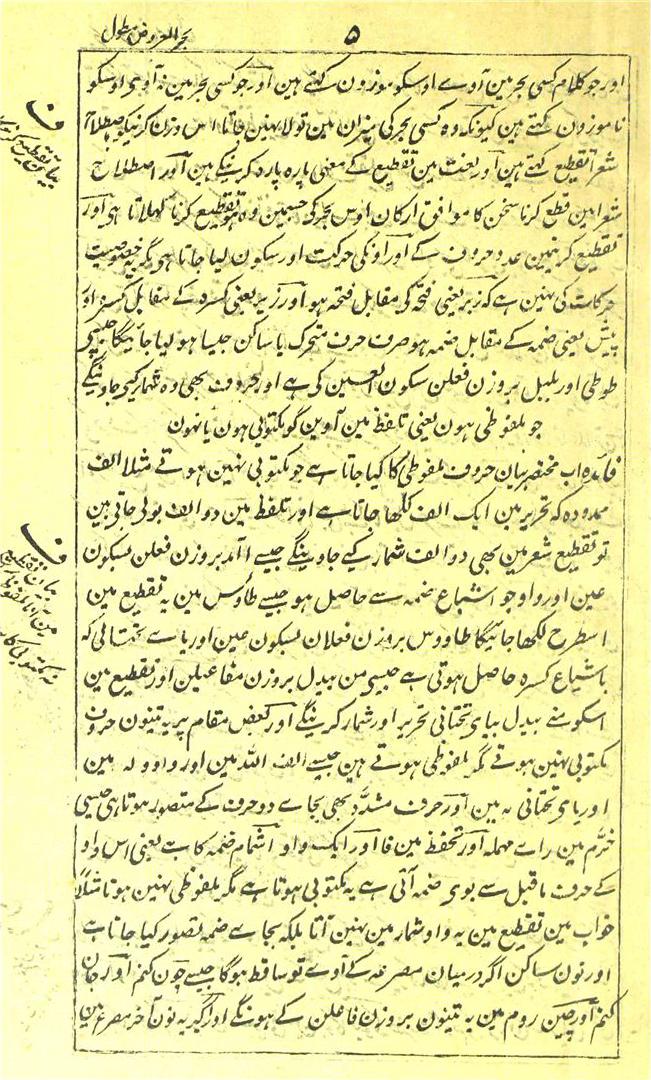 ۵
بحر العروض مطول
اور جو کلام کسی بحر مین آوے اوسکو موزون کہتے ہین اور جو کسی بحر مین نہ آوی اوسکو
ناموزون کہتے ہین کیونکہ وہ کسی بحر کی میزان مین تولا نہین جاتا اس وزن کرنیکو اصطلاح
شعرا تقطیع کہتے ہین اور لغت مین تقطیع کے معنی پارہ پارہ کرنیکے ہین اور اصطلاح
شعرا مین قطع کرنا سخن کا موافق ارکان اوس بحر کی جسمین وہ ہو تقطیع کرنا کہلاتا ہی اور
تقطیع کرنیمین عدد حروف کے اور اونکی حرکت اور سکون لیا جاتا ہی مگر یہ خصوصیت
حرکات کی نہین ہے کہ زبر یعنی فتحہ کی مقابل فتحہ ہو اور زیر یعنی کسرہ کے مقابل کسرہ اور
پیش یعنی ضمہ کے مقابل ضمہ ہو صرف حرف متحرک یا ساکن جیسا ہو لیا جائیگا جیسی
طوطی اور بلبل بروزن فعلن سکون العین کی ہے اور حروف بھی وہ شمار کیی جاوینگے
جو ملفوظی ہون یعنی تلفظ مین آوین گو مکتوبی ہون یا نہون
فائدہ اب مختصر بیان حروف ملفوظی کا کیا جاتا ہے جو مکتوبی نہین ہوتے مثلا الف
ممدودہ کہ تحریر مین ایک الف لکھا جاتا ہے اور تلفظ مین دو الف بولی جاتی ہین
تو تقطیع شعر مین بھی دو الف شمار کیے جاوینگے جیسے اامد بروزن فعلن بسکون
عین اور واو جو اشباع ضمہ سے حاصل ہو جیسے طاؤس مین یہ تقطیع مین
اسطرح لکھا جائیگا طاووس بروزن فعلان بسکون عین اور یاے تحتانی کہ
باشباع کسرہ حاصل ہوتی ہے جیسی من بیدل بروزن مفاعیلن اور تقطیع مین
اسکو منے بیدل بیای تحتانی تحریر اور شمار کرینگے اور بعض مقام پر یہ تینون حروف
مکتوبی نہین ہوتے مگر ملفوظی ہوتے ہین جیسے الف اللہ مین اور واو و لہ مین
اور یای تحتانی بہ مین اور حرف مشدد بھی بجاے دو حرف کے متصور ہوتا ہی جیسی
خرّم مین راے مہملہ اور تحفظ مین فا اور ایک واو اشمام ضمہ کا ہے یعنی اس واو
کے حرف ماقبل سے بوی ضمہ آتی ہے یہ مکتوبی ہوتا ہے مگر ملفوظی نہین ہوتا مثلاً
خواب مین تقطیع مین یہ واو شمار مین نہین آتا بلکہ بجاے ضمہ تصور کیا جاتا ہے
اور نون ساکن اگر درمیان مصرعہ کے آوے تو ساقط ہوگا جیسے چون کنم اور جان
کنم اور چین روم مین یہ تینون بروزن فاعلن کے ہونگے اور اگر یہ نون آخر مصرع مین
ف
بیان تقطیع
ف
بیان تقطیع
مین